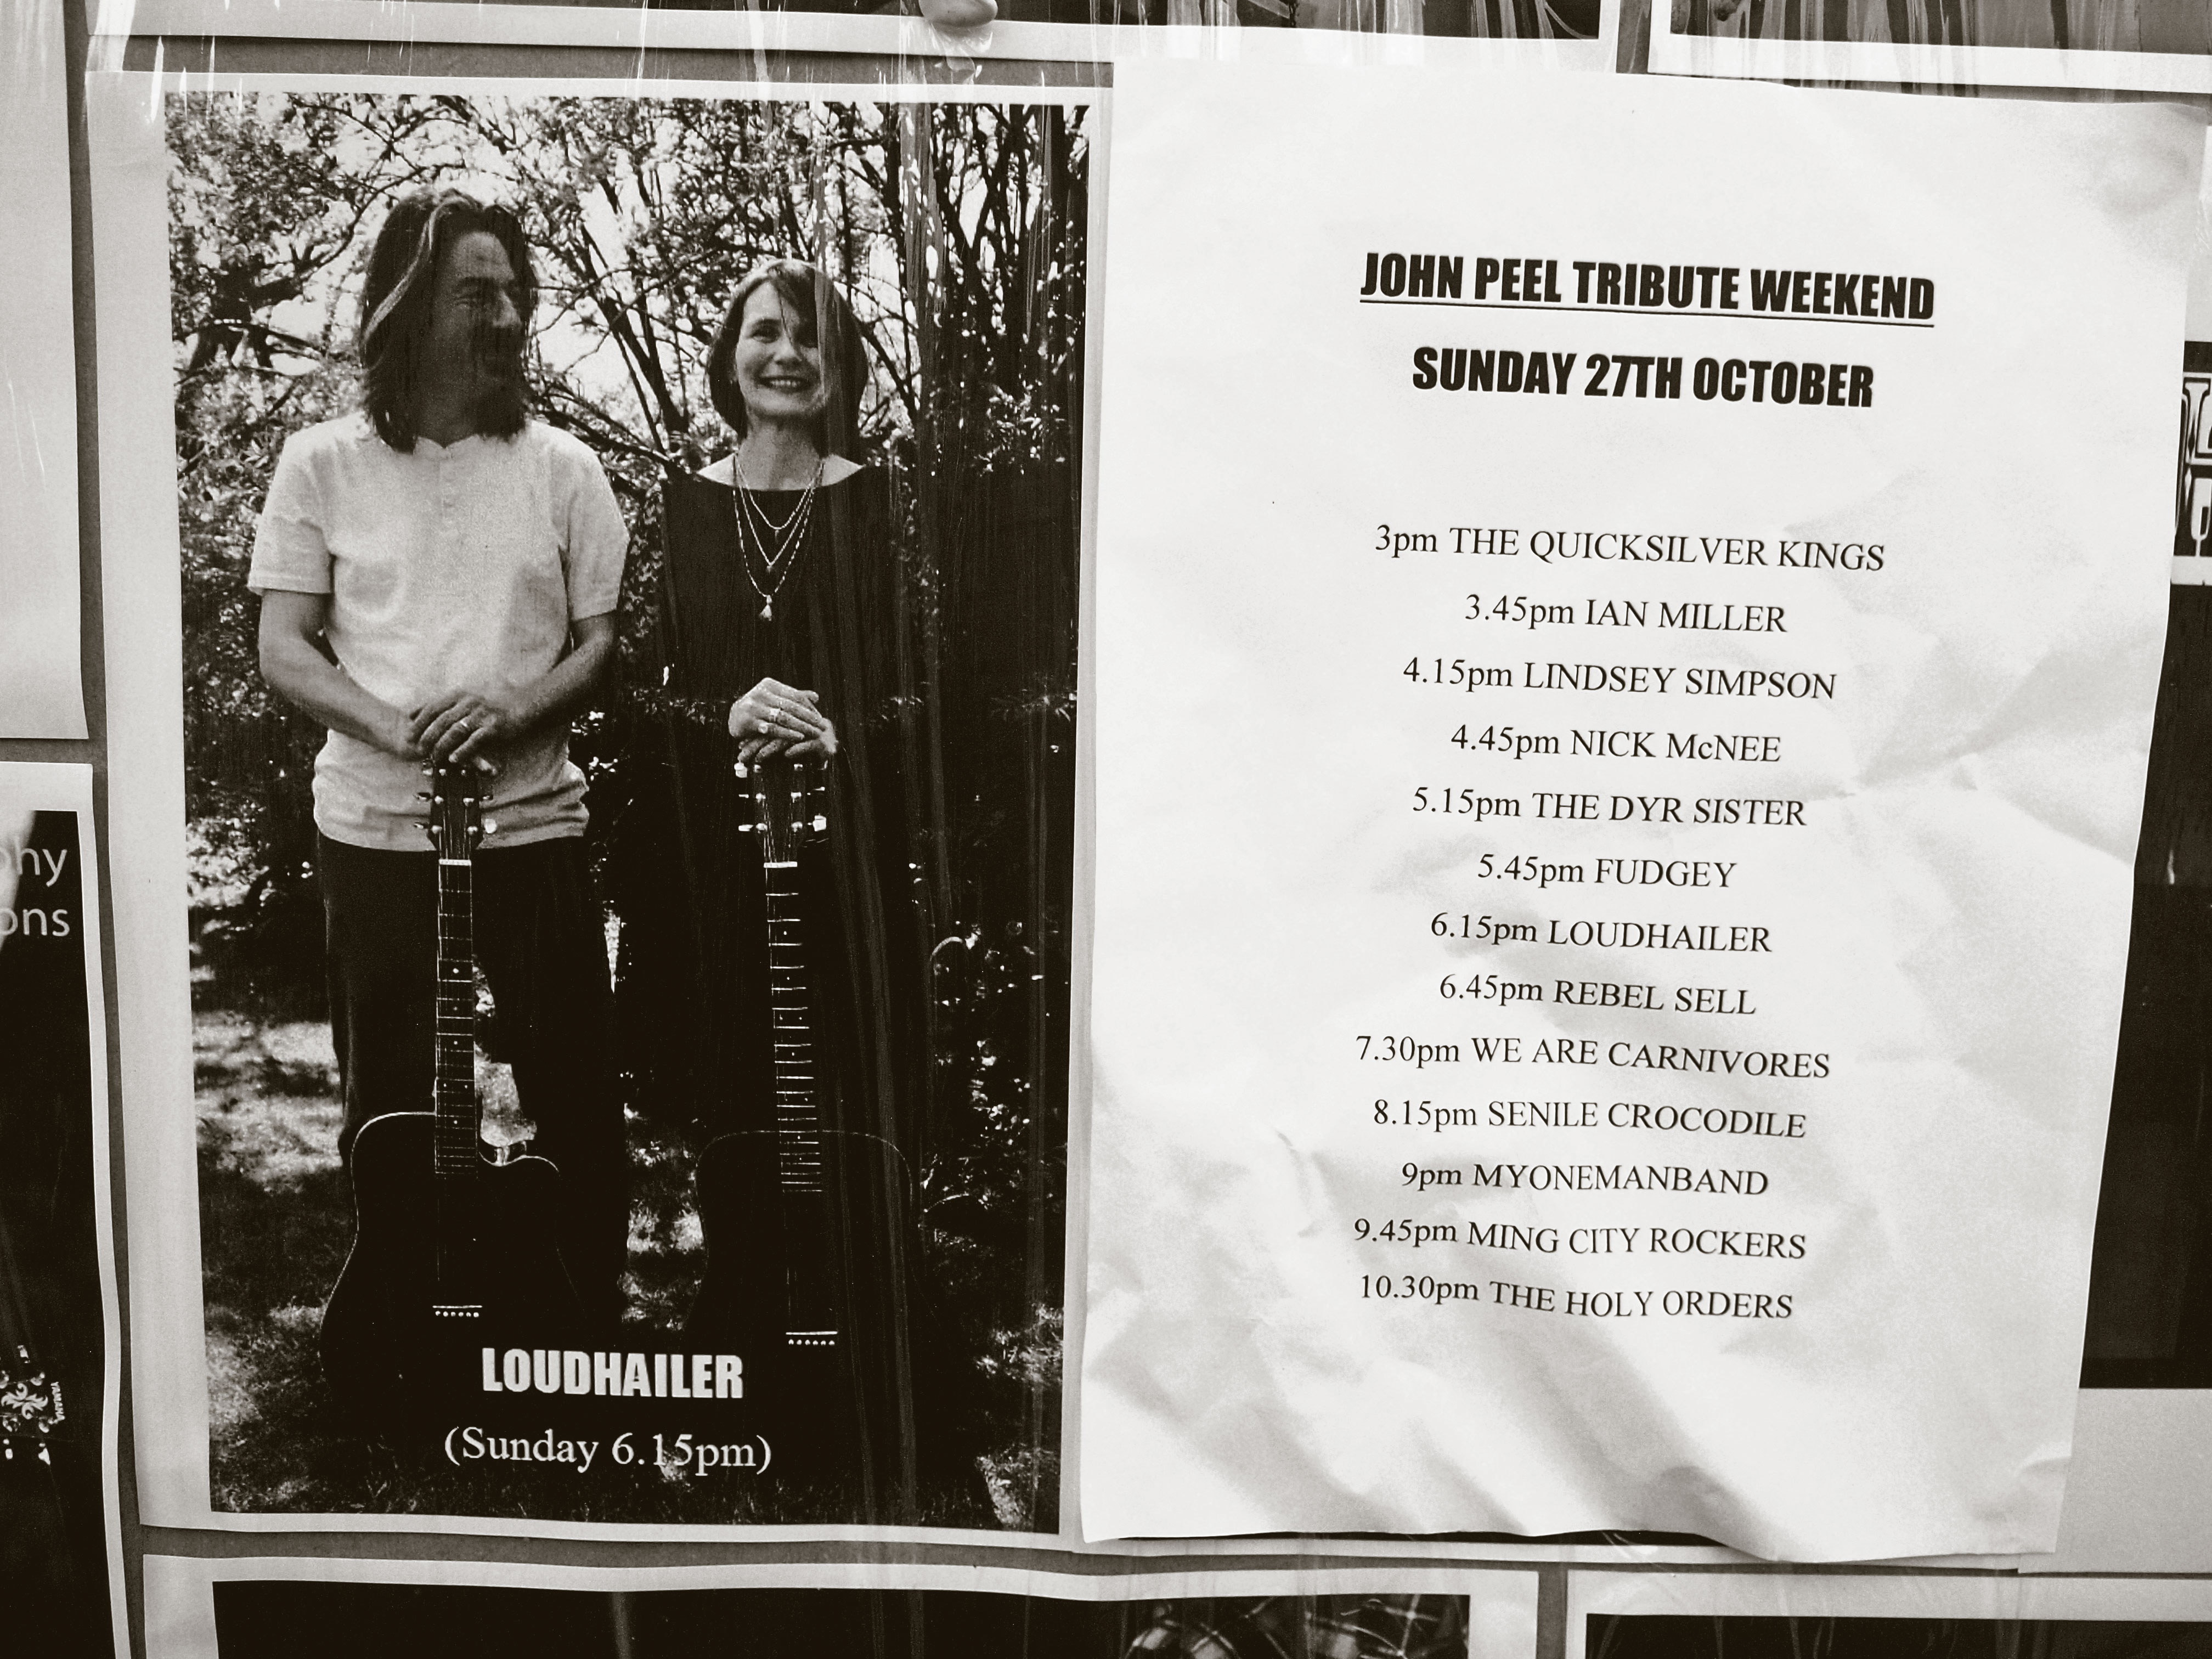 LOUDHAILER
(Sunday 6.15pm)
JOHN PEEL TRIBUTE WEEKEND
SUNDAY 27TH OCTOBER
3pm THE QUICKSILVER KINGS
3.45pm IAN MILLER
4.15pm LINDSEY SIMPSON
4.45pm NICK McNEE
5.15pm THE DYR SISTER
5.45pm FUDGEY
6.15pm LOUDHAILER
6.45pm REBEL SELL
7.30pm WE ARE CARNIVORES
8.15pm SENILE CROCODILE
9pm MYONEMANBAND
9.45pm MING CITY ROCKERS
10.30pm THE HOLY ORDERS
YAMAHA